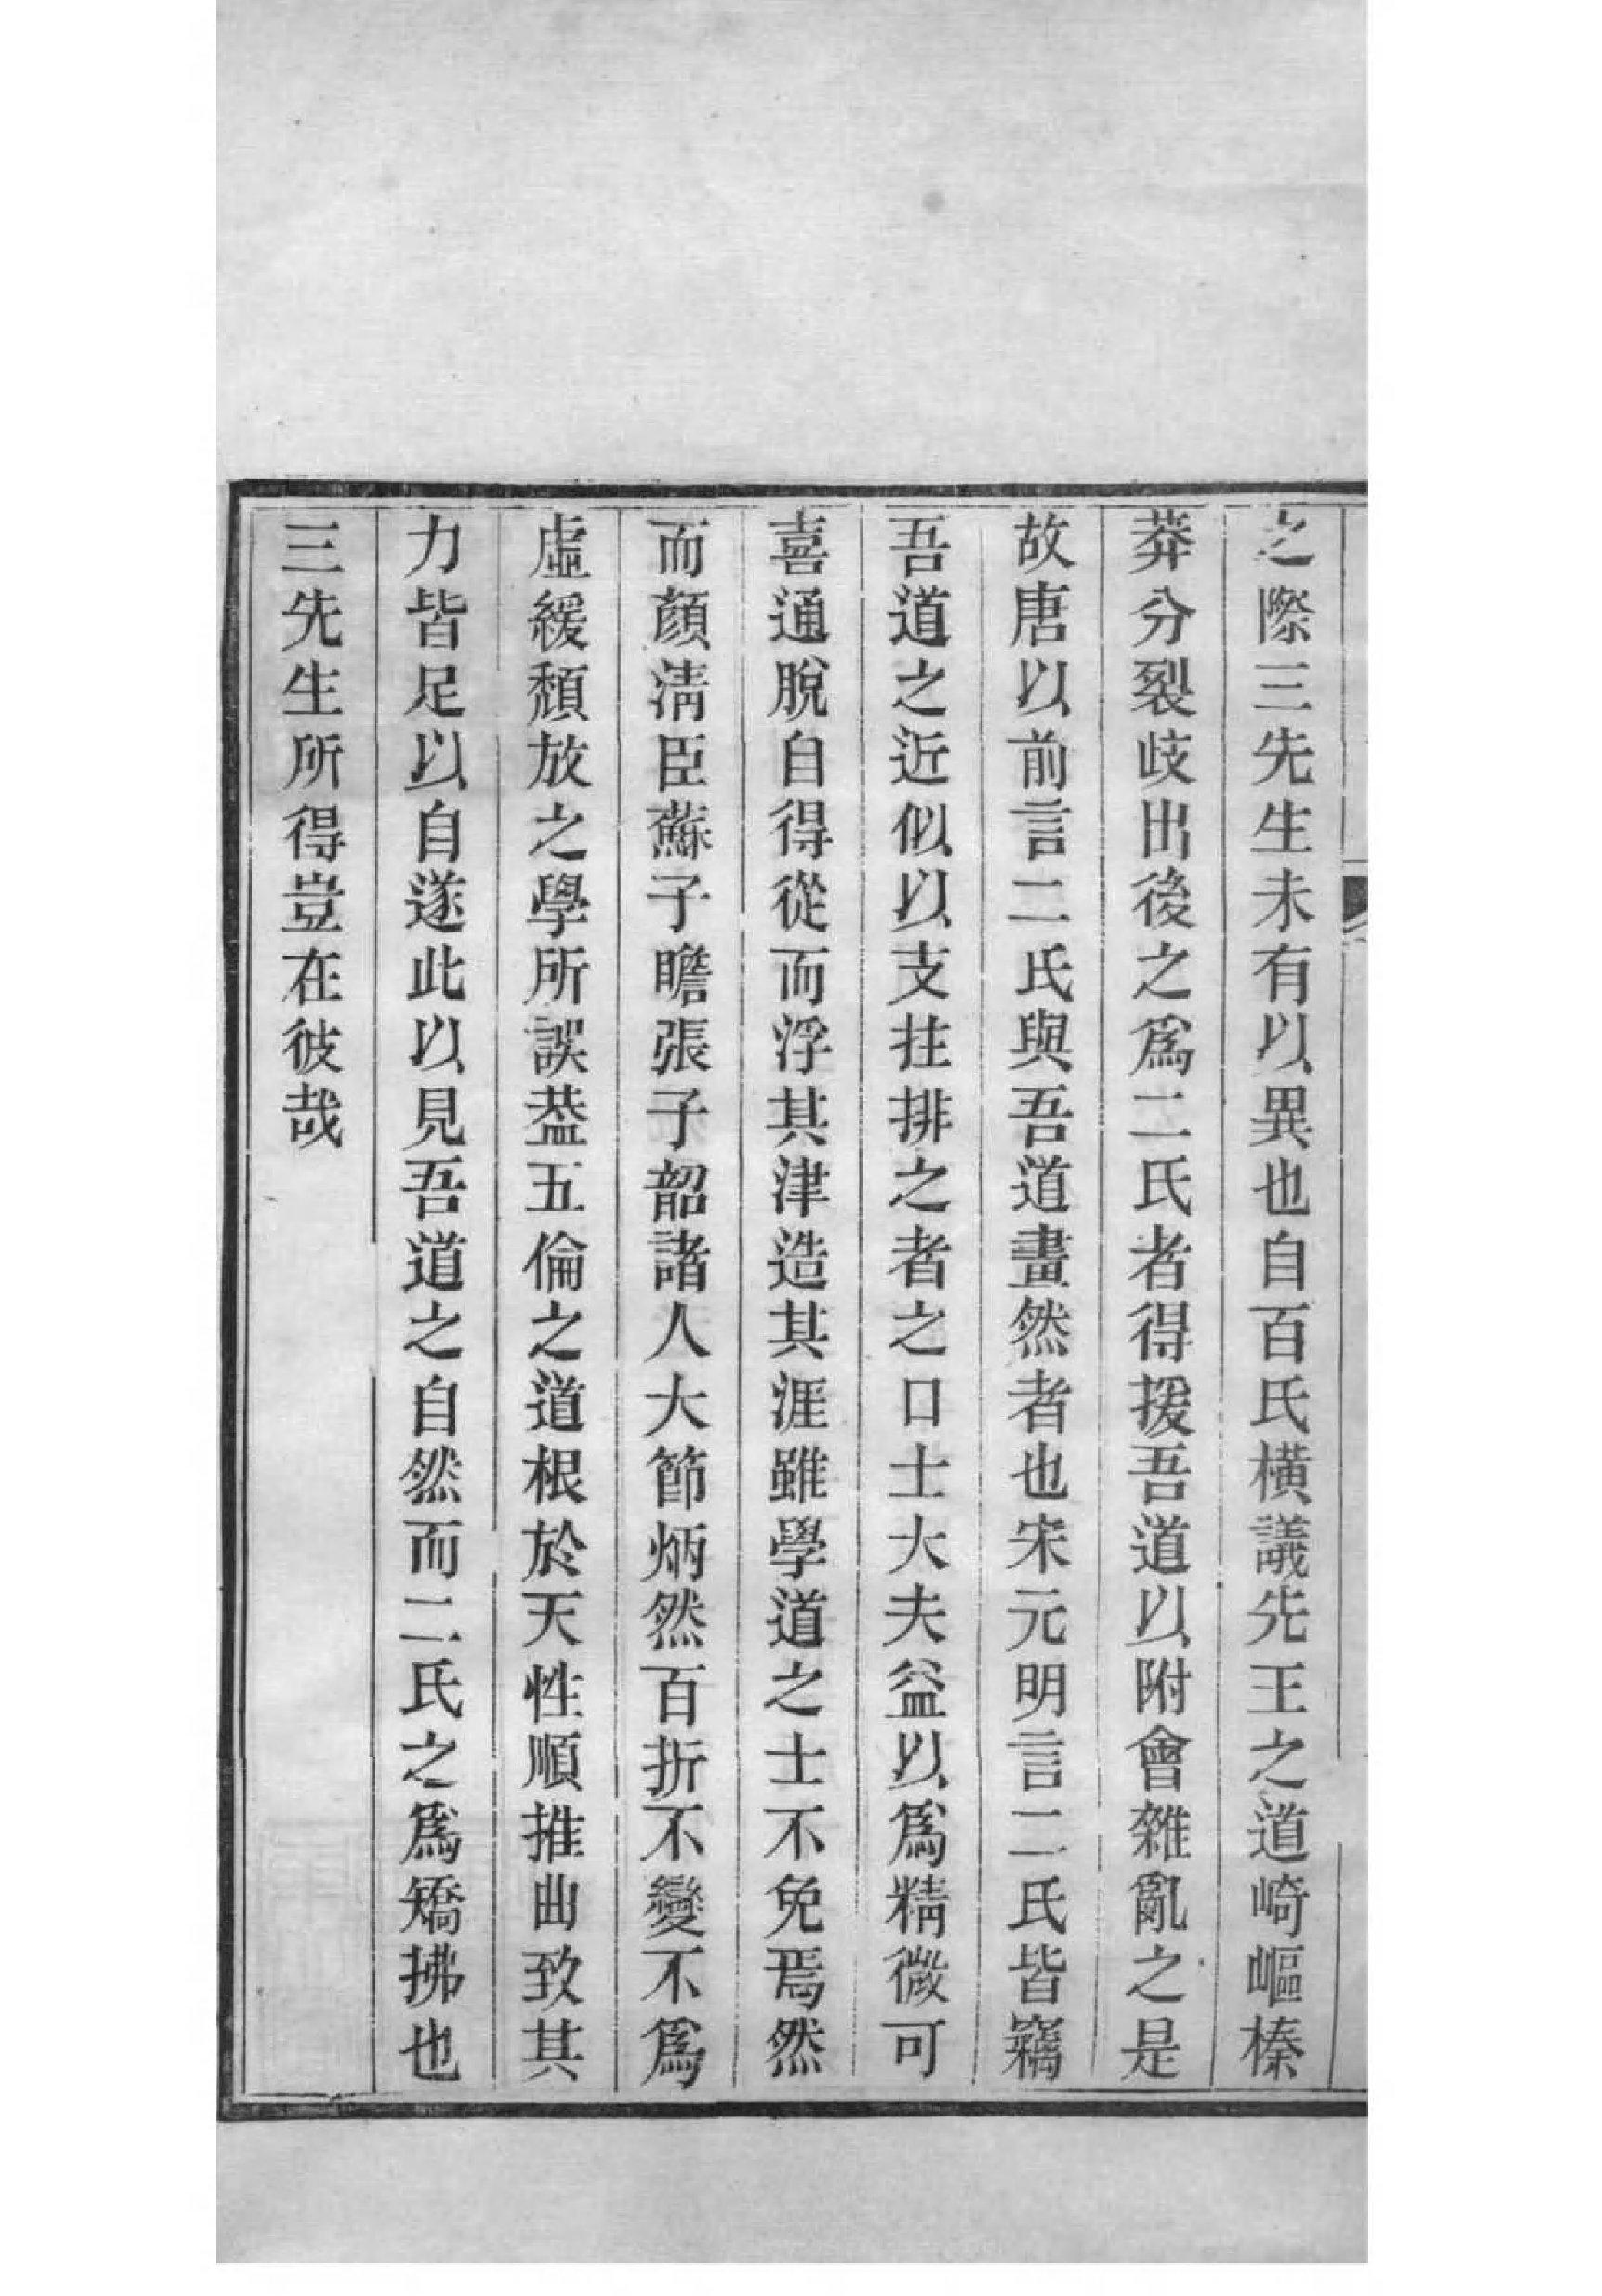 之際三先生未有以異也自百氏橫議先王之道崎嶇榛
莽分裂歧出後之爲二氏者得援吾道以附會雜亂之是
故唐以前言二氏與吾道畫然者也宋元明言二氏皆竊
吾道之近似以支拄排之者之口士大夫益以爲精微可
喜通脫自得從而浮其津造其涯雖學道之士不免焉然
而顏淸臣蘇子瞻張子韶諸人大節炳然百折不變不爲
虛緩頹放之學所誤葢五倫之道根於天性順推曲致其
力皆足以自遂此以見吾道之自然而二氏之爲矯拂也
三先生所得豈在彼哉